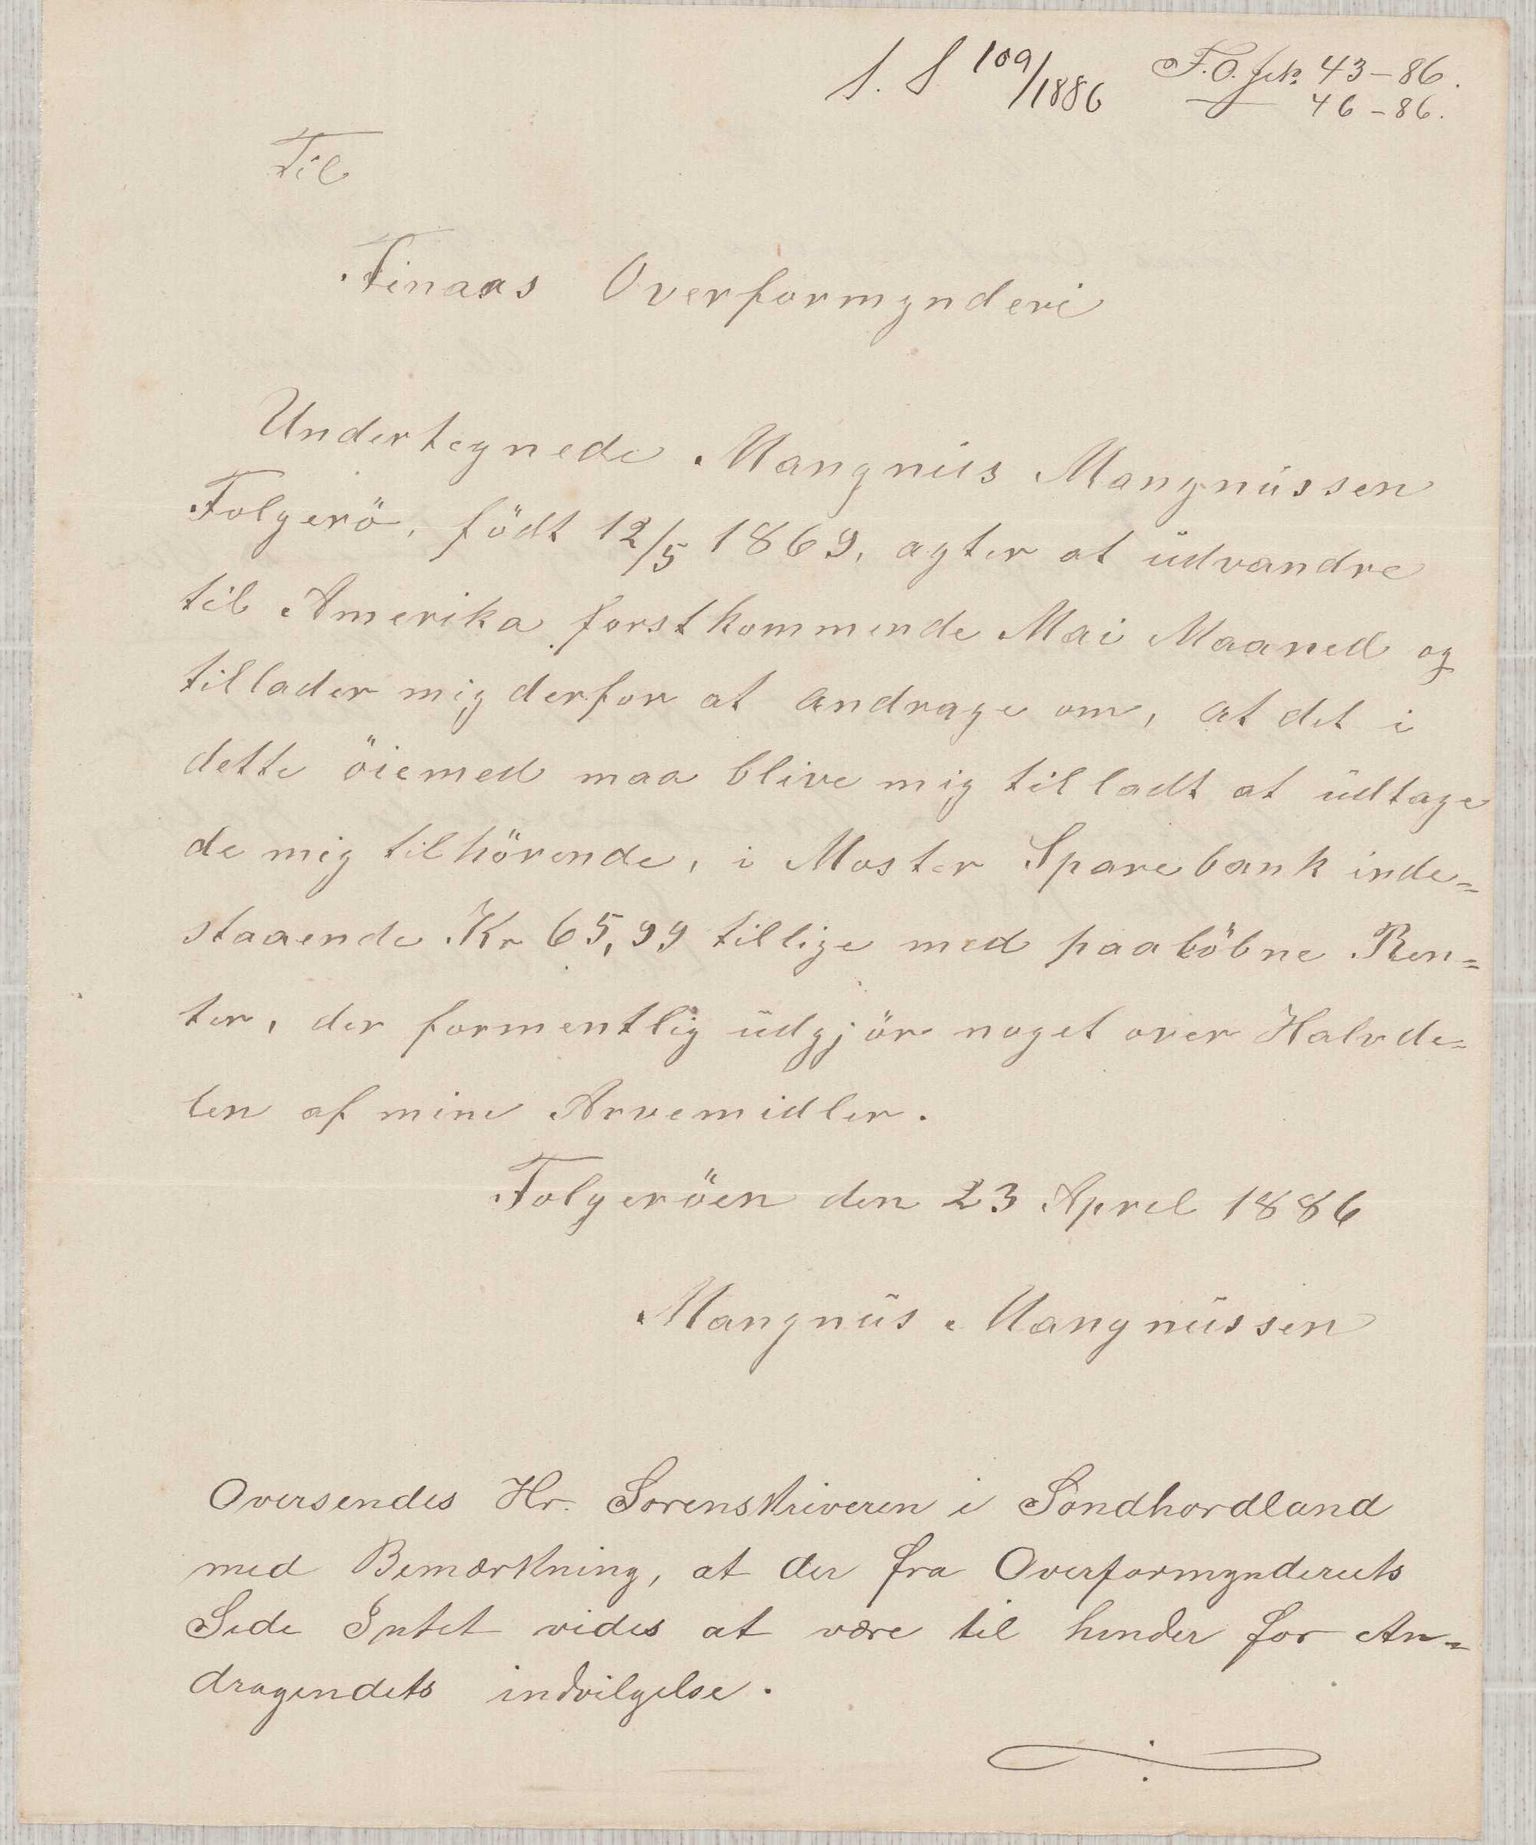 S. S. 109/1886 F.O. jek. 43-86.
46-86.
Til
Finaas Overformynderi
Undertegnede Mangnus Mangnussen
Folgerö, födt 12/5 1869, agter at udvandre
til Amerika forstkommende Mai Maaned og
tillader mig derfor at andrage om, at det i
dette öiemed maa blive mig tilladt at udtage
de mig tilhörende, i Moster Sparebank inde=
staaende Kr 65,99 tillige med paalöbne Ren=
ter, der formentlig udgjör noget over Halvde=
len af mine Arvemidler.
Folgeröen den 23 April 1886
Mangnus Mangnussen
Oversendes Hr. Sorenskriveren i Söndhordland
med Bemærkning, at der fra Overformynderiets
Side Intet vides at være til hinder for An=
dragendets indvilgelse.